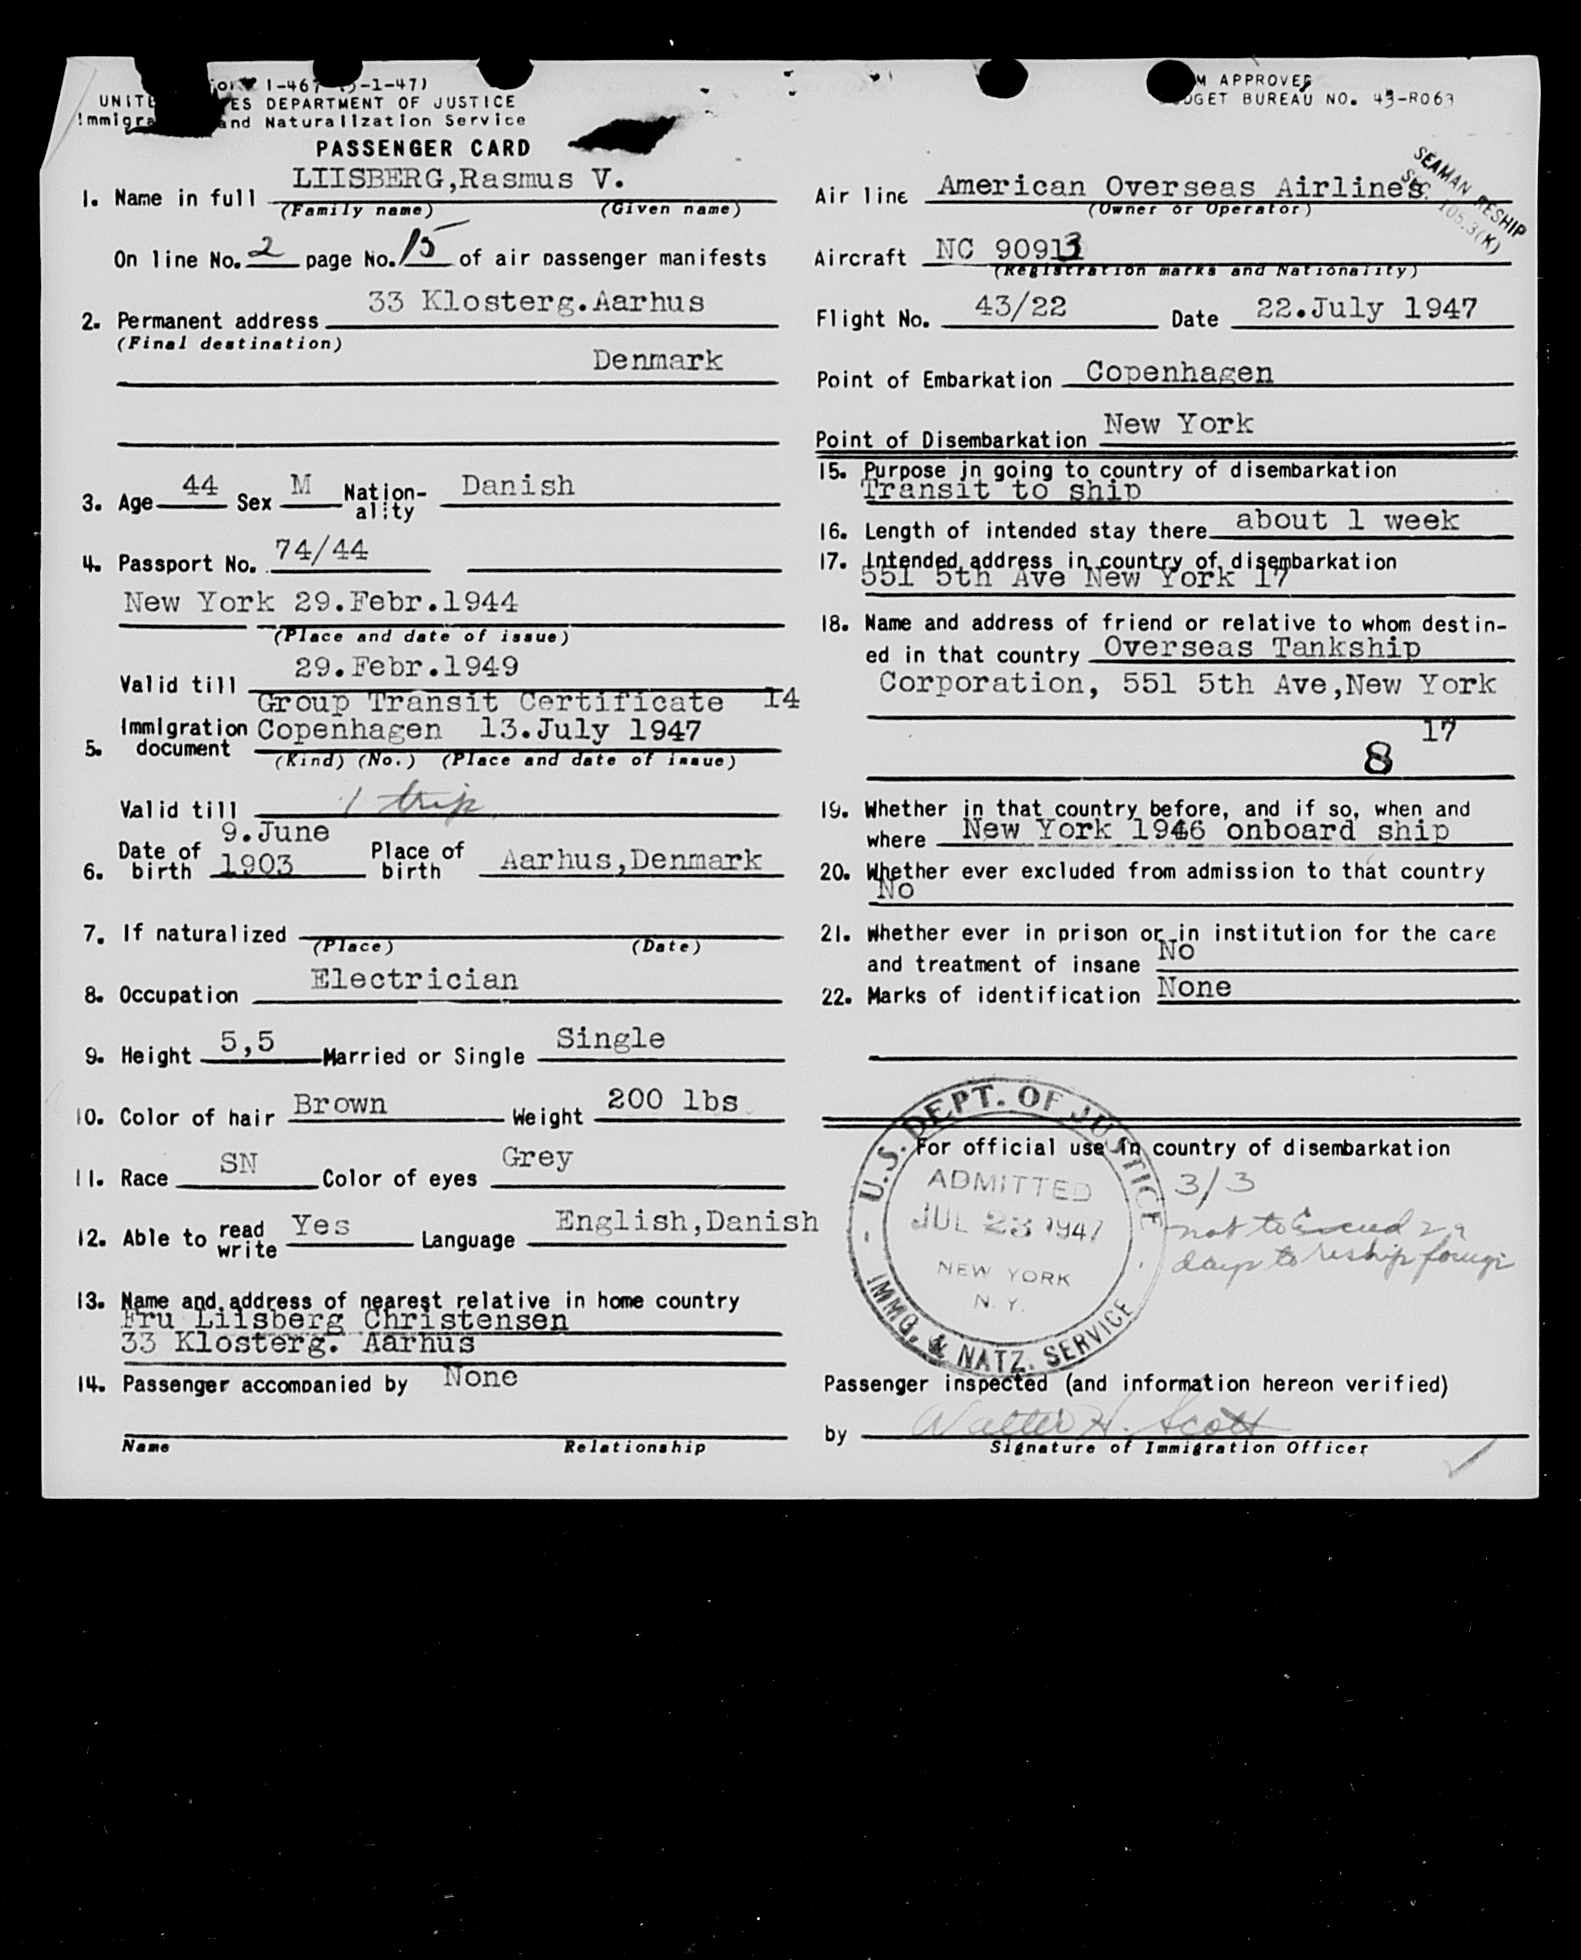 I-467 -1-47)
UNIT ES DEPARTMENT OF JUSTICE
Immigra and Naturalization Service
PASSENGER CARD
1. Name in full LIISBERG,Rasmus V.
(Family name) (Given name)
On line No. 2 page No. 15 of air passenger manifests
2. Permanent address 33 Klosterg.Aarhus
(Final destination)
Denmark
3. Age 44 Sex M Nation-
ality Danish
4. Passport No. 74/44
New York 29.Febr.1944
(Place and date of issue)
Valid till 29.Febr.1949
Group Transit Certificate 14
5. Immigration
document Copenhagen 13.July 1947
(Kind) (No.) (Place and date of issue)
Valid till 1 trip
6. Date of
birth 9.June
1903 Place of
birth Aarhus,Denmark
7. If naturalized
(Place) (Date)
8. Occupation Electrician
9. Height 5,5 Married or Single Single
10. Color of hair Brown Weight 200 lbs
11. Race SN Color of eyes Grey
12. Able to read
write Yes Language English,Danish
13. Name and address of nearest relative in home country
Fru Liisberg Christensen
33 Klosterg. Aarhus
14. Passenger accompanied by None
Name Relationship
M APPROVED
DGET BUREAU NO. 43-R063
SEAMAN RESHIP
SEC. 105.3(K)
Air line American Overseas Airlines
(Owner or Operator)
Aircraft NC 90913
(Registration marks and Nationality)
Flight No. 43/22 Date 22.July 1947
Point of Embarkation Copenhagen
Point of Disembarkation New York
15. Purpose in going to country of disembarkation
Transit to ship
16. Length of intended stay there about 1 week
17. Intended address in country of disembarkation
551 5th Ave New York 17
18. Name and address of friend or relative to whom destin-
ed in that country Overseas Tankship
Corporation, 551 5th Ave,New York
17
8
19. Whether in that country before, and if so, when and
where New York 1946 onboard ship
20. Whether ever excluded from admission to that country
No
21. Whether ever in prison or in institution for the care
and treatment of insane No
22. Marks of identification None
For official use in country of disembarkation
U.S. DEPT. OF JUSTICE
ADMITTED
JUL 23 1947
NEW YORK
N. Y.
IMMG. & NATZ. SERVICE
3/3
not to exceed 29
days to reship foreign
Passenger inspected (and information hereon verified)
by Walter H. Scott
Signature of Immigration Officer